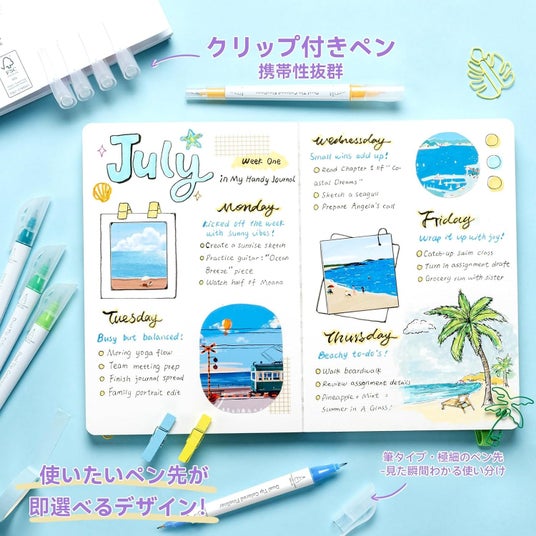 クリップ付きペン
携帯性抜群
FSC
July
Week One
in My Handy Journal
Monday
Kicked off the week
with sunny vibes!
Create a sunrise sketch
Practice guitar: "Ocean
Breeze" piece
Watch half of Moana
Tuesday
Busy but balanced!
Moring yoga flow
Team metting prep
Finish journal spread
Family portrait edit
Wednesday
Small wins add up!
Read Chapter 1 of "Co-
astal Dreams"
Sketch a seagull
Prepare Angela's card
Friday
Wrap it up with joy!
Catch-up swim class
Turn in assignment draft
Grocery run with sister
Thursday
Beachy to-do's!
Walk boardwalk
Review assignment details
Pineapple + Mint =
Summer in A Glass!
使いたいペン先が
即選べるデザイン!
筆タイプ・極細のペン先
-見た瞬間わかる使い分け
Dual Tip Colored Fineliner